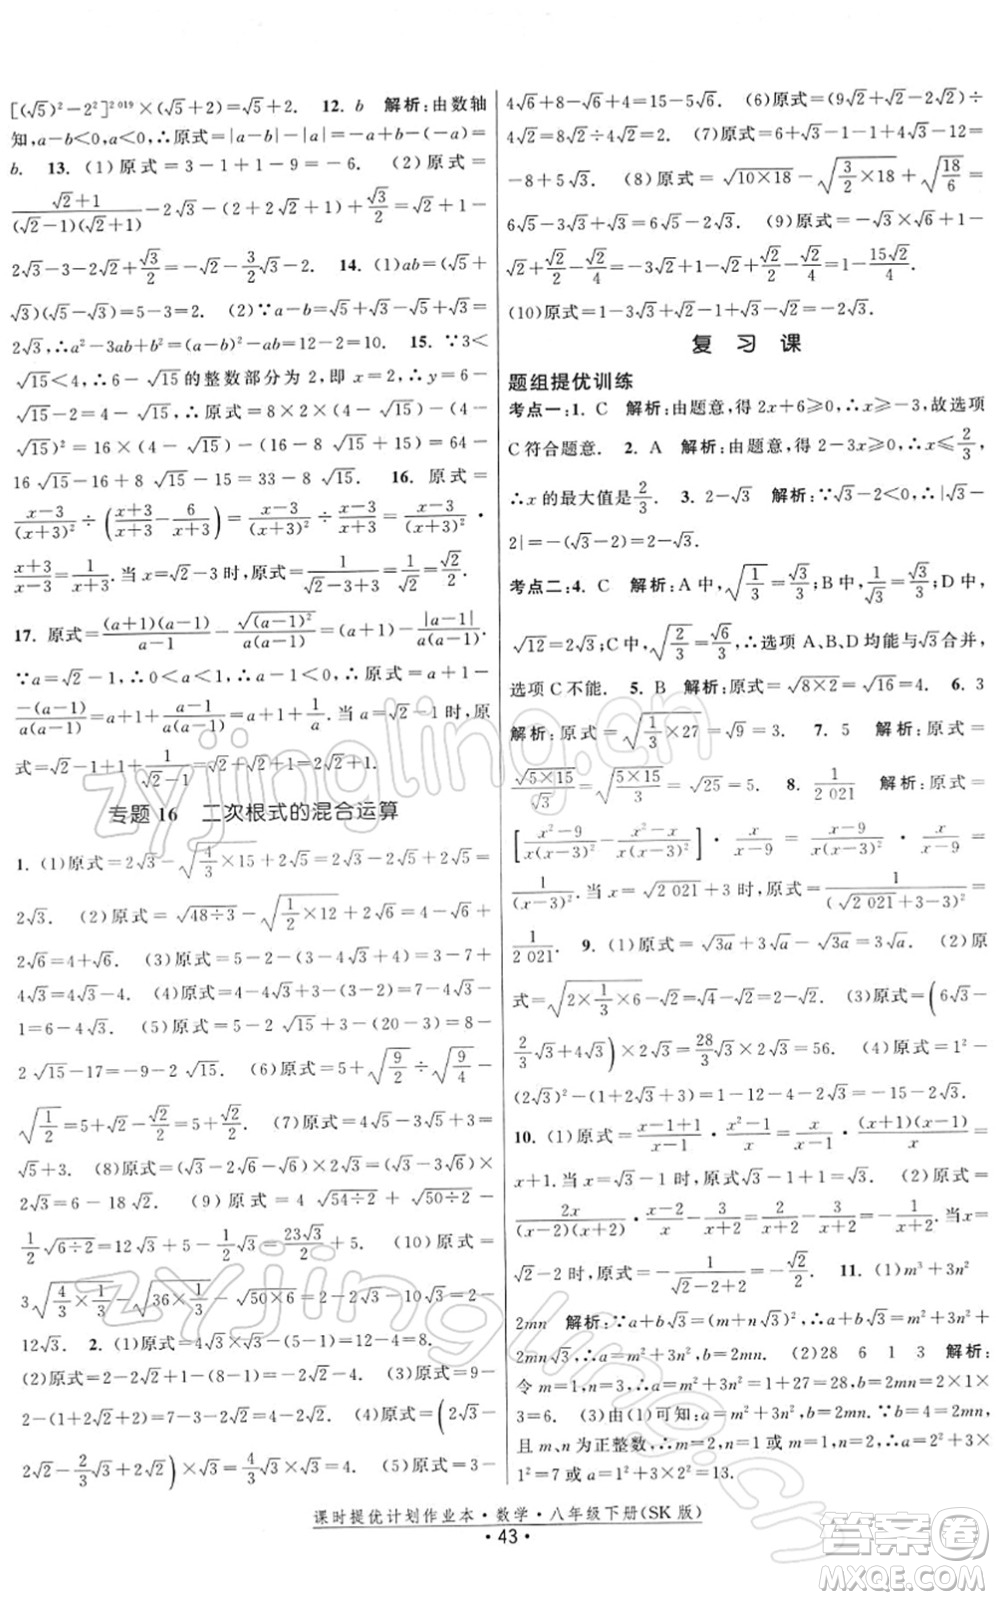 [(√5)²－2²]²⁰¹⁹×(√5＋2)＝√5＋2. 12. b 解析:由数轴
知,a－b＜0,a＜0,∴原式＝|a－b|－|a|＝－a＋b－(－a)＝
b. 13. (1)原式＝3－1＋1－9＝－6. (2)原式＝
(√2＋1)/((√2－1)(√2＋1))－2√3－(2＋2√2＋1)＋√3/2＝√2＋1－
2√3－3－2√2＋√3/2＝－√2－3/2√3－2. 14. (1)ab＝(√5＋
√3)(√5－√3)＝5－3＝2. (2)∵a－b＝√5＋√3－√5＋√3＝
2√3,∴a²－3ab＋b²＝(a－b)²－ab＝12－2＝10. 15. ∵3＜
√15＜4,∴√15的整数部分为2,即x＝2,∴y＝6－
√15－2＝4－√15,∴原式＝8×2×(4－√15)－(4－
√15)²＝16×(4－√15)－(4－√15)²＝16×4＝64－
16√15－16＋8√15－15＝33－8√15. 16. 原式＝
(x－3)/(x＋3)²÷((x＋3)/(x＋3)－6/(x＋3))＝(x－3)/(x＋3)²÷(x－3)/(x＋3)＝(x－3)/(x＋3)²·
(x＋3)/(x－3)＝1/(x＋3).当x＝√2－3时,原式＝1/(√2－3＋3)＝1/√2＝√2/2.
17. 原式＝(a＋1)(a－1)/(a－1)－√(a－1)²/(a(a－1))＝(a＋1)－|a－1|/(a(a－1)).
∵a＝√2－1,∴0＜a＜1,∴a－1＜0,∴原式＝a＋1－
－(a－1)/(a(a－1))＝a＋1＋(a－1)/(a(a－1))＝a＋1＋1/a.当a＝√2－1时,原
式＝√2－1＋1＋1/(√2－1)＝√2＋√2＋1＝2√2＋1.
专题16 二次根式的混合运算
1. (1)原式＝2√3－√(4/3×15)＋2√5＝2√3－2√5＋2√5＝
2√3. (2)原式＝√(48÷3)－√(1/2×12)＋2√6＝4－√6＋
2√6＝4＋√6. (3)原式＝5－2－(3－4√3＋4)＝3－7＋
4√3＝4√3－4. (4)原式＝4√3＋3－(3－2)＝4√3＋3－
1＝6－4√3. (5)原式＝5－2√15＋3－(16－9)＝8－
2√15－17＝－9－2√15. (6)原式＝5＋√(9/2)÷√9－
√(1/2)＝5＋√2/2－√2/2＝5＋√2/2. (7)原式＝4√5－3√5＋3＝
√5＋3. (8)原式＝(√3－2√6－√6)×2√3＝(√3－3√6)×
2√3＝6－18√2. (9)原式＝4√(54÷2)＋√(50÷2)－
1/2√(6÷2)＝12√3＋5－1/2√3＝23√3/2＋5. (10)原式＝
3√(4/3×1/3)－√(36×1/3)－√(50×6)＝2－2√3－10√3＝2－
12√3. 2. (1)原式＝4√3×√3－12÷4＝12－4＝8.
(2)原式＝2√2－√2－4＝√2－4. (3)原式＝9－
2－(1＋2√2＋2)＝7－3－2√2＝4－2√2. (4)原式＝(2√3－
2√2－2/3√3＋2√2)×√3＝4√3/3×√3＝4. (5)原式＝3－
4√6＋8－√6＋4＝15－5√6. (6)原式＝(9√2＋√2－2√2)÷
4√2＝8√2÷4√2＝2. (7)原式＝6√3－1－1＋4√3－12＝
－8＋5√3. (8)原式＝√(10×18)－√(3/2×18)＋√(18/6)＝
6√5－3√3＋√3＝6√5－2√3. (9)原式＝－√3×√6＋1－
√2＋√2/4＝－3√2＋1－√2＋√2/4＝1－15√2/4.
(10)原式＝1－3√3＋2√3－√2－1＋√3－√2＝－2√2.
复习课
题组提优训练
考点一:1. C 解析:由题意,得2x＋6≥0,∴x≥－3,故选项
C符合题意. 2. A 解析:由题意,得2－3x≥0,∴x≤2/3,
∴x的最大值是2/3. 3. 2－√3 解析:∵√3－2＜0,∴|√3－
2|＝－(√3－2)＝2－√3.
考点二:4. C 解析:A中,√(1/3)＝√3/3;B中,1/√3＝√3/3;D中,
√12＝2√3,C中,√(2/3)＝√6/3;∴选项A、B、D均能与√3合并,
选项C不能. 5. B 解析:原式＝√(8×2)＝√16＝4. 6. 3
解析:原式＝√(1/3×27)＝√9＝3. 7. 5 解析:原式＝
√(5×15)/√3＝√(5×15/3)＝√25＝5. 8. 1/2 021 解析:原式＝
[(x²－9)/(x(x－3)²)－(x²－3x)/(x(x－3)²)]·x/(x－9)＝(x－9)/(x(x－3)²)·x/(x－9)＝
1/(x－3)².当x＝√2 021＋3时,原式＝1/(√2 021＋3－3)²＝
1/2 021. 9. (1)原式＝√3a＋3√a－√3a＝3√a. (2)原
式＝√(2×1/3×6)－√2＝√4－√2＝2－√2. (3)原式＝(6√3－
2/3√3＋4√3)×2√3＝28/3√3×2√3＝56. (4)原式＝1²－
(2√3)²－(2－2√2＋4)＝1－12－4－2√3＝－15－2√3.
10. (1)原式＝(x－1＋1)/(x－1)·(x²－1)/x＝x/(x－1)·(x＋1)(x－1)/x＝
x＋1.当x＝√3－1时,原式＝√3－1＋1＝√3. (2)原式＝
2x/((x－2)(x＋2))·(x－2)/x－3/(x＋2)＝2/(x＋2)－3/(x＋2)＝－1/(x＋2).当x＝
√2－2时,原式＝－1/(√2－2＋2)＝－1/√2＝－√2/2. 11. (1)m²＋3n²
2mn 解析:∵a＋b√3＝(m＋n√3)²,∴a＋b√3＝m²＋3n²＋
2mn√3,∴a＝m²＋3n²,b＝2mn. (2)28 6 1 3 解析:
令m＝1,n＝3,∴a＝m²＋3n²＝1＋27＝28,b＝2mn＝2×1×
3＝6. (3)由(1)可知:a＝m²＋3n²,b＝2mn,∵b＝4＝2mn,
且m、n为正整数,∴m＝2,n＝1或m＝1,n＝2,∴a＝2²＋
3×1²＝7或a＝1²＋3×2²＝13.
课时提优计划作业本·数学·八年级下册(SK版)
·43·
zyjingling.cn
zyjingling.cn
答案圈
MXQE.COM